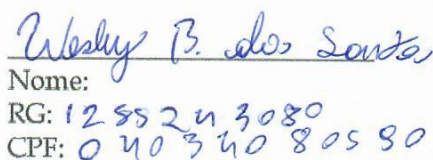 Wesley B. dos Santos
Nome:
RG: 12855243080
CPF: 04034080590